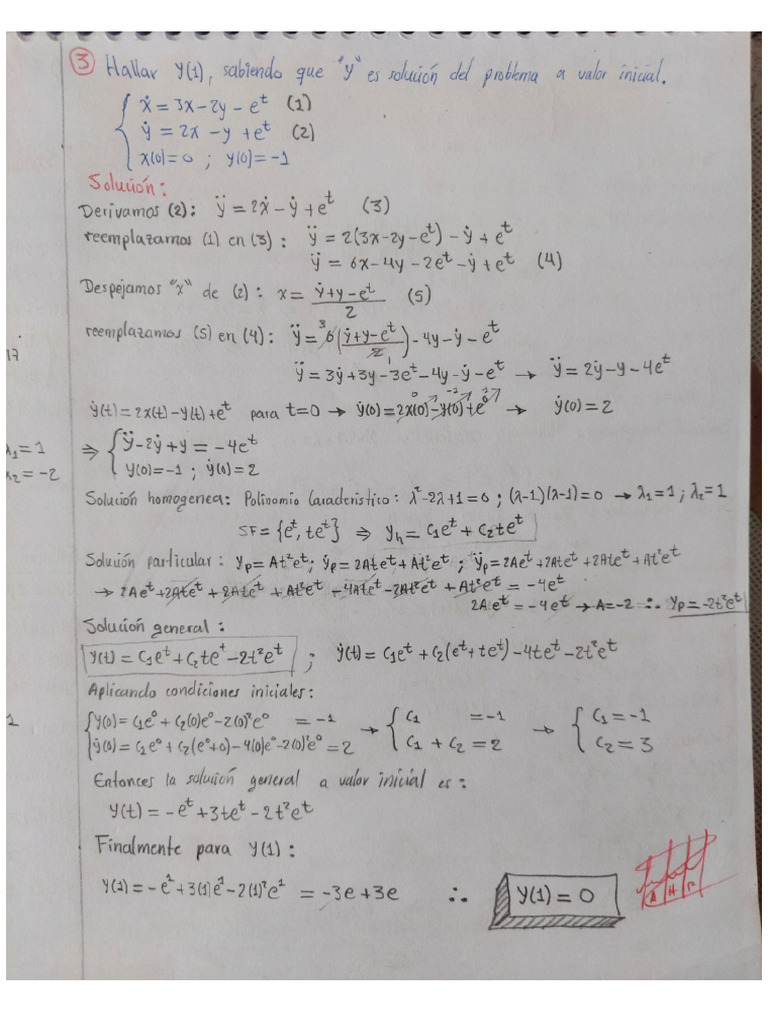 ③ Hallar y(1), sabiendo que "y" es solución del problema a valor inicial.
ẋ = 3x - 2y - e^t (1)
ẏ = 2x - y + e^t (2)
x(0) = 0 ; y(0) = -1
Solución:
Derivamos (2): ÿ = 2ẋ - ẏ + e^t (3)
reemplazamos (1) en (3): ÿ = 2(3x - 2y - e^t) - ẏ + e^t
ÿ = 6x - 4y - 2e^t - ẏ + e^t (4)
Despejamos "x" de (2): x = (ẏ + y - e^t)/2 (5)
reemplazamos (5) en (4): ÿ = 6((ẏ + y - e^t)/2) - 4y - ẏ - e^t
3
1
17
ÿ = 3ẏ + 3y - 3e^t - 4y - ẏ - e^t → ÿ = 2ẏ - y - 4e^t
ẏ(t) = 2x(t) - y(t) + e^t para t=0 → ẏ(0) = 2x(0) - y(0) + e^0 → ẏ(0) = 2
λ₁ = 1
⇒ ÿ - 2ẏ + y = -4e^t
λ₂ = -2
y(0) = -1 ; ẏ(0) = 2
Solución homogenea: Polinomio Característico: λ² - 2λ + 1 = 0 ; (λ-1)(λ-1) = 0 → λ₁ = 1 ; λ₂ = 1
SF = {e^t, te^t} ⇒ y_h = C₁e^t + C₂te^t
Solución particular: y_p = At²e^t; ẏ_p = 2Ate^t + At²e^t ; ÿ_p = 2Ae^t + 2Ate^t + 2Ate^t + At²e^t
→ 2Ae^t + 2Ate^t + 2Ate^t + At²e^t - 4Ate^t - 2At²e^t + At²e^t = -4e^t
2Ae^t = -4e^t → A = -2 ∴ y_p = -2t²e^t
Solución general:
y(t) = C₁e^t + C₂te^t - 2t²e^t ; ẏ(t) = C₁e^t + C₂(e^t + te^t) - 4te^t - 2t²e^t
Aplicando condiciones iniciales:
1
y(0) = C₁e^0 + C₂(0)e^0 - 2(0)²e^0 = -1 → C₁ = -1 → C₁ = -1
ẏ(0) = C₁e^0 + C₂(e^0 + 0) - 4(0)e^0 - 2(0)²e^0 = 2 C₁ + C₂ = 2 C₂ = 3
Entonces la solución general a valor inicial es:
y(t) = -e^t + 3te^t - 2t²e^t
Finalmente para y(1):
y(1) = -e^1 + 3(1)e^1 - 2(1)²e^1 = -3e + 3e ∴ y(1) = 0